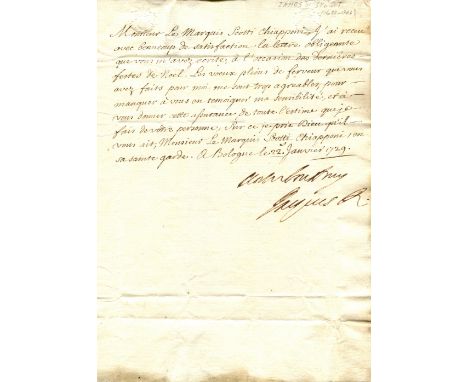 Monsieur Le Marquis Scotti Chiapponi, J'ai receu
avec beaucoup de satisfaction la lettre obligeante
que vous m'avez écrite, à l'occasion des dernières
festes de Noel. Les voeux pleins de ferveur que vous
avez faits pour moi me sont trop agreables, pour
manquer à vous en temoigner ma sensibilité, et à
vous donner cette assurance de toute l'estime que je
fais de vôtre personne, Sur ce je prie Dieu qu'il
vous ait, Monsieur Le Marquis Scotti Chiapponi en
sa sainte garde. A Bologne le 22. Janvier 1729.
Jacques R.